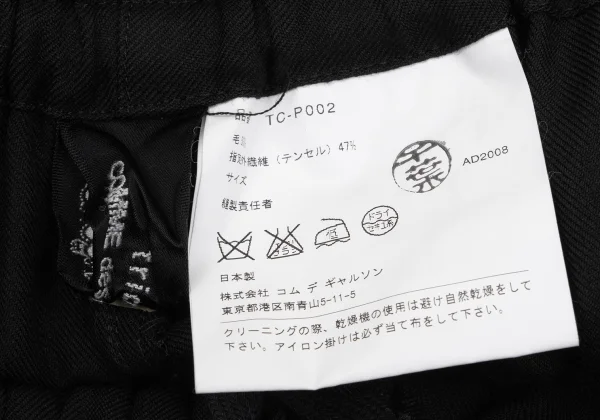 品番 TC-P002
毛
指定外繊維 (テンセル) 47%
サイズ
縫製責任者
AD2008
エンソサラシ
低
ドライ
セキユ系
日本製
株式会社 コム デ ギャルソン
東京都港区南青山5-11-5
クリーニングの際、乾燥機の使用は避け自然乾燥をして
下さい。アイロン掛けは必ず当て布をして下さい。
COMME des
trip